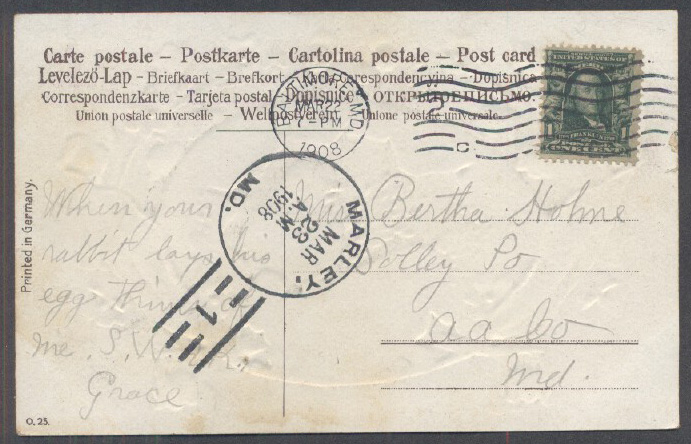 Carte postale – Postkarte – Cartolina postale – Post card
Levelező-Lap – Briefkaart – Brefkort – Karta korespondencyjna – Dopisnica
Correspondenzkarte – Tarjeta postal – Dopisnice – ОТКРЫТОЕ ПИСЬМО.
Union postale universelle – Weltpostverein – Unione postale universale.
BALTIMORE, MD.
MAR 22
7 – PM
1908
C
UNITED STATES OF
1 1
ONE CENT
MARLEY,
MD.
MAR
23
A M
1908
1
Printed in Germany.
When your
rabbit lays his
egg think of
me. S.W.
Grace
Miss Bertha Holme
Solley Po
aa Co
Md.
O. 25.